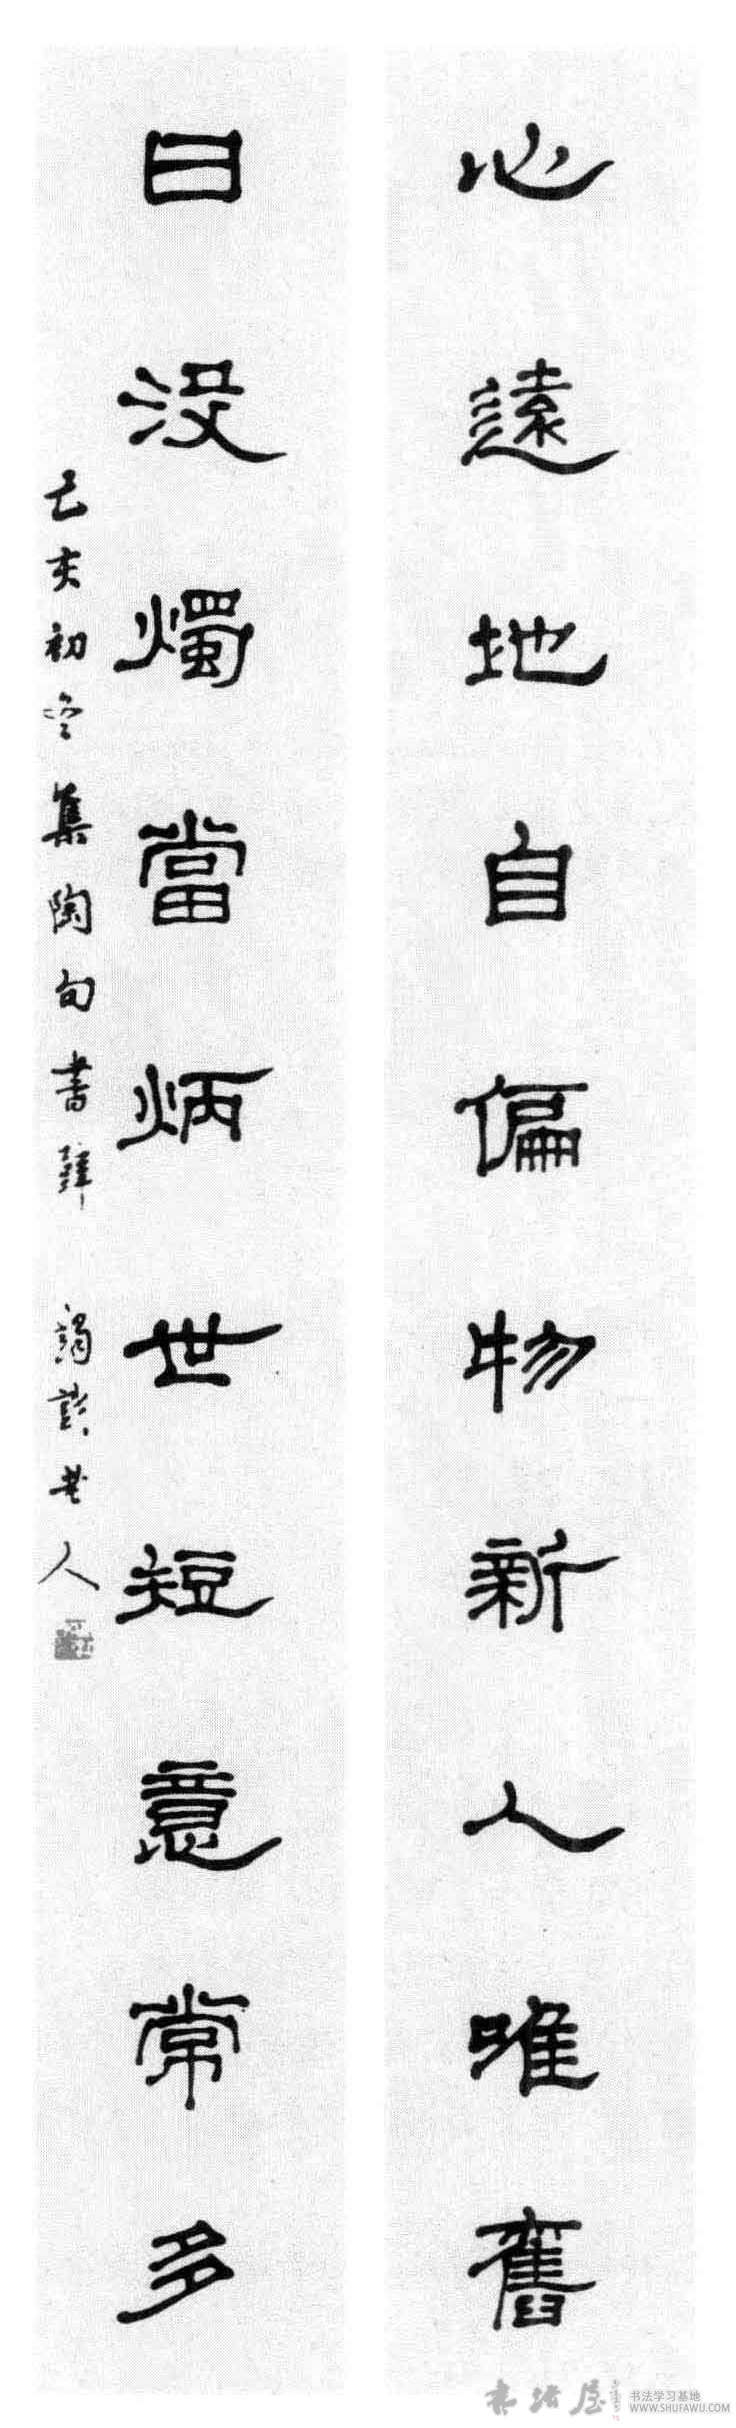 心遠地自偏物新人唯舊
日没燭當炳世短意常多
己亥初冬集陶句書
人
书法学习基地
WWW.SHUFAWU.COM